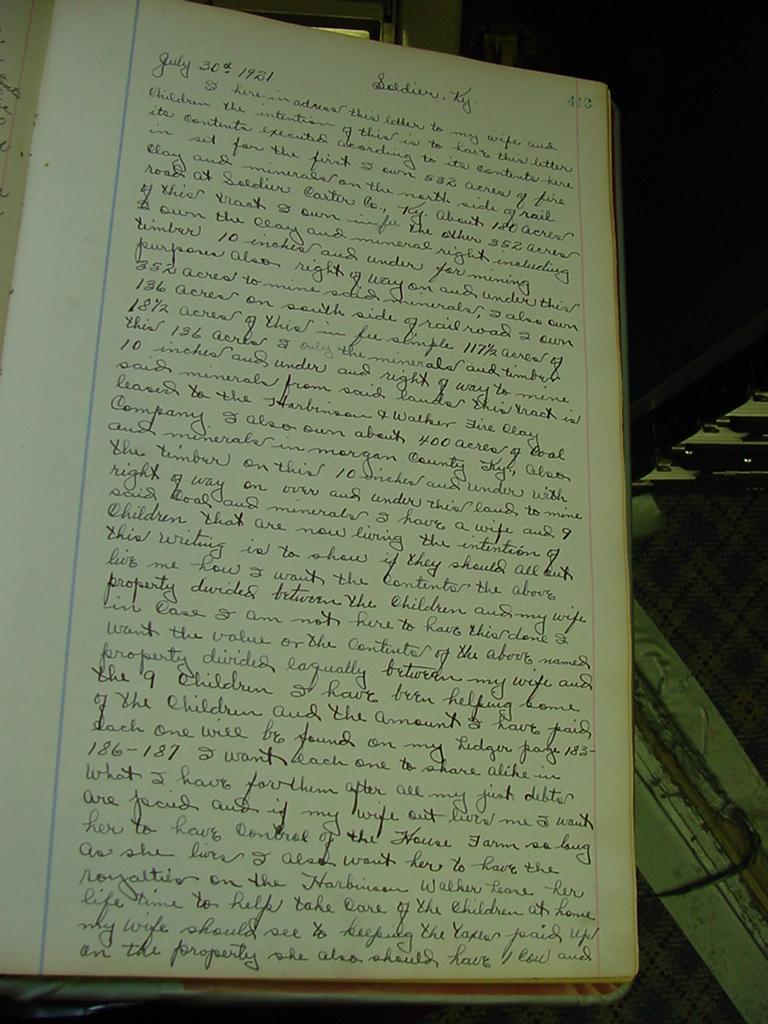 July 30th 1921 Soldier, Ky. 413
I here in adress this letter to my wife and
Children the intention of this is to have this letter
its Contents executed according to its Contents here
in set for the first I own 532 acres of fire
Clay and minerals on the north side of rail
road at Soldier Carter Co., Ky. About 180 acres
of this tract I own in fee the other 352 acres
I own the Clay and mineral right including
timber 10 inches and under for mining
purposes Also right of way on and under this
352 acres to mine said minerals, I also own
136 acres on south side of railroad I own
18½ acres of this in fee simple 117½ acres of
this 136 acres I only the minerals and timber
10 inches and under and right of way to mine
said minerals from said lands this tract is
leased to the Harbinson & Walker Fire Clay
Company I also own about 400 acres of Coal
and minerals in morgan County Ky., Also
the timber on this 10 inches and under with
right of way on over and under this land to mine
said Coal and minerals I have a wife and 9
Children that are now living the intention of
this writing is to show if they should all out
live me how I want the Contents the above
property divided between the Children and my wife
in Case I am not here to have this done I
want the value or the Contents of the above named
property divided Eaqually between my wife and
the 9 Children I have been helping some
of the Children and the amount I have paid
Each one will be found on my Ledger page 183-
186-187 I want Each one to share alike in
what I have for them after all my just debts
are paid and if my wife out lives me I want
her to have Control of the House Farm so long
as she lives I also want her to have the
royalties on the Harbinson Walker Lease her
life time to help take Care of the Children at home
my wife should see to keeping the taxes paid up
on the property she also should have 1 Cow and